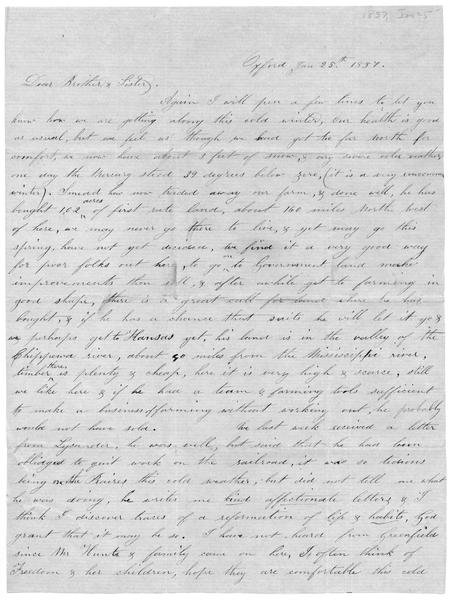 1857, Jan 25
Oxford Jan 25th 1857.
Dear Brother & Sister,
Again I will pen a few lines to let you
know how we are getting along this cold winter, our health is good
as usual, but we feel as though we had got too far North for
comfort, we now have about 3 feet of snow & very severe cold weather
one day the Mercury stood 39 degrees below zero, (it is a very uncommon
winter). has now traded away our farm, & done well, he has
bought 102 acres of first rate land, about 160 miles North west
of here, we may never go there to live, & yet may go this
spring, have not yet decided, we find it a very good way
for poor folks out here, to go on to Government land make
improvements then sell, & after while get to farming in
good shape, there is a great call for land where he has
bought, & if he has a chance that suits he will let it go &
we perhaps get to Kansas yet, his land is in the valley of the
Chippewa river, about 90 miles from the Mississippi river,
timber is there, plenty & cheap, here it is very high & scarce, still
we like here & if he had a team & farming tools sufficient
to make a business of farming without working out, he probably
would not have sold. We last week received a letter
from Lysander, he was well, but said that he had been
obliged to quit work on the railroad, it was so tedious
being on the Raires this cold weather, but did not tell me what
he was doing, he writes me kind affectionate letters & I
think I discover traces of a reformation of life & habits, God
grant that it may be so. I have not heard from Greenfield
since Mr Hunts & family came on here, I often think of
Freedom & her children, hope they are comfortable this cold